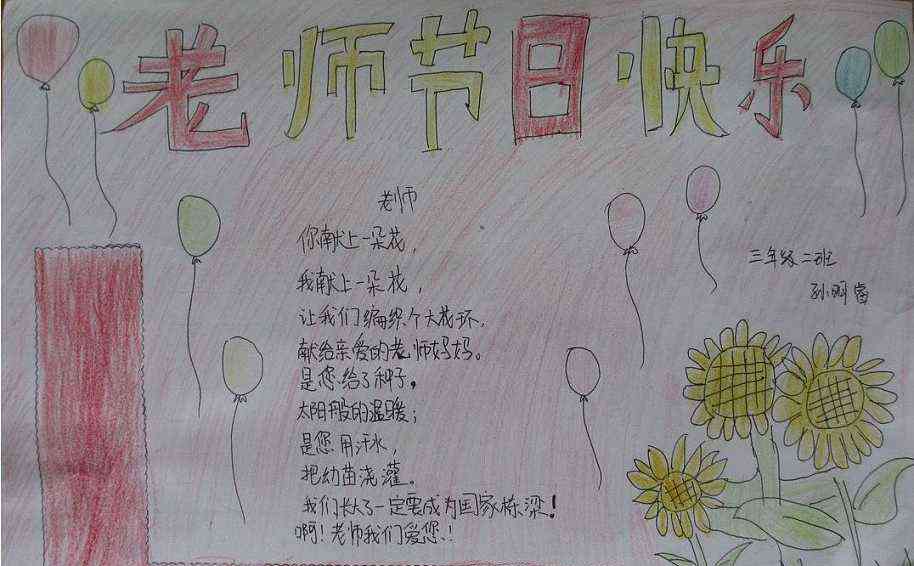 老师节日快乐
老师
你献上一朵花，
我献上一朵花，
让我们编织个大花环，
献给亲爱的老师妈妈。
是您给了种子，
太阳般的温暖；
是您用汗水，
把幼苗浇灌。
我们长大了一定要成为国家栋梁！
啊！老师我们爱您！
三年级二班
孙